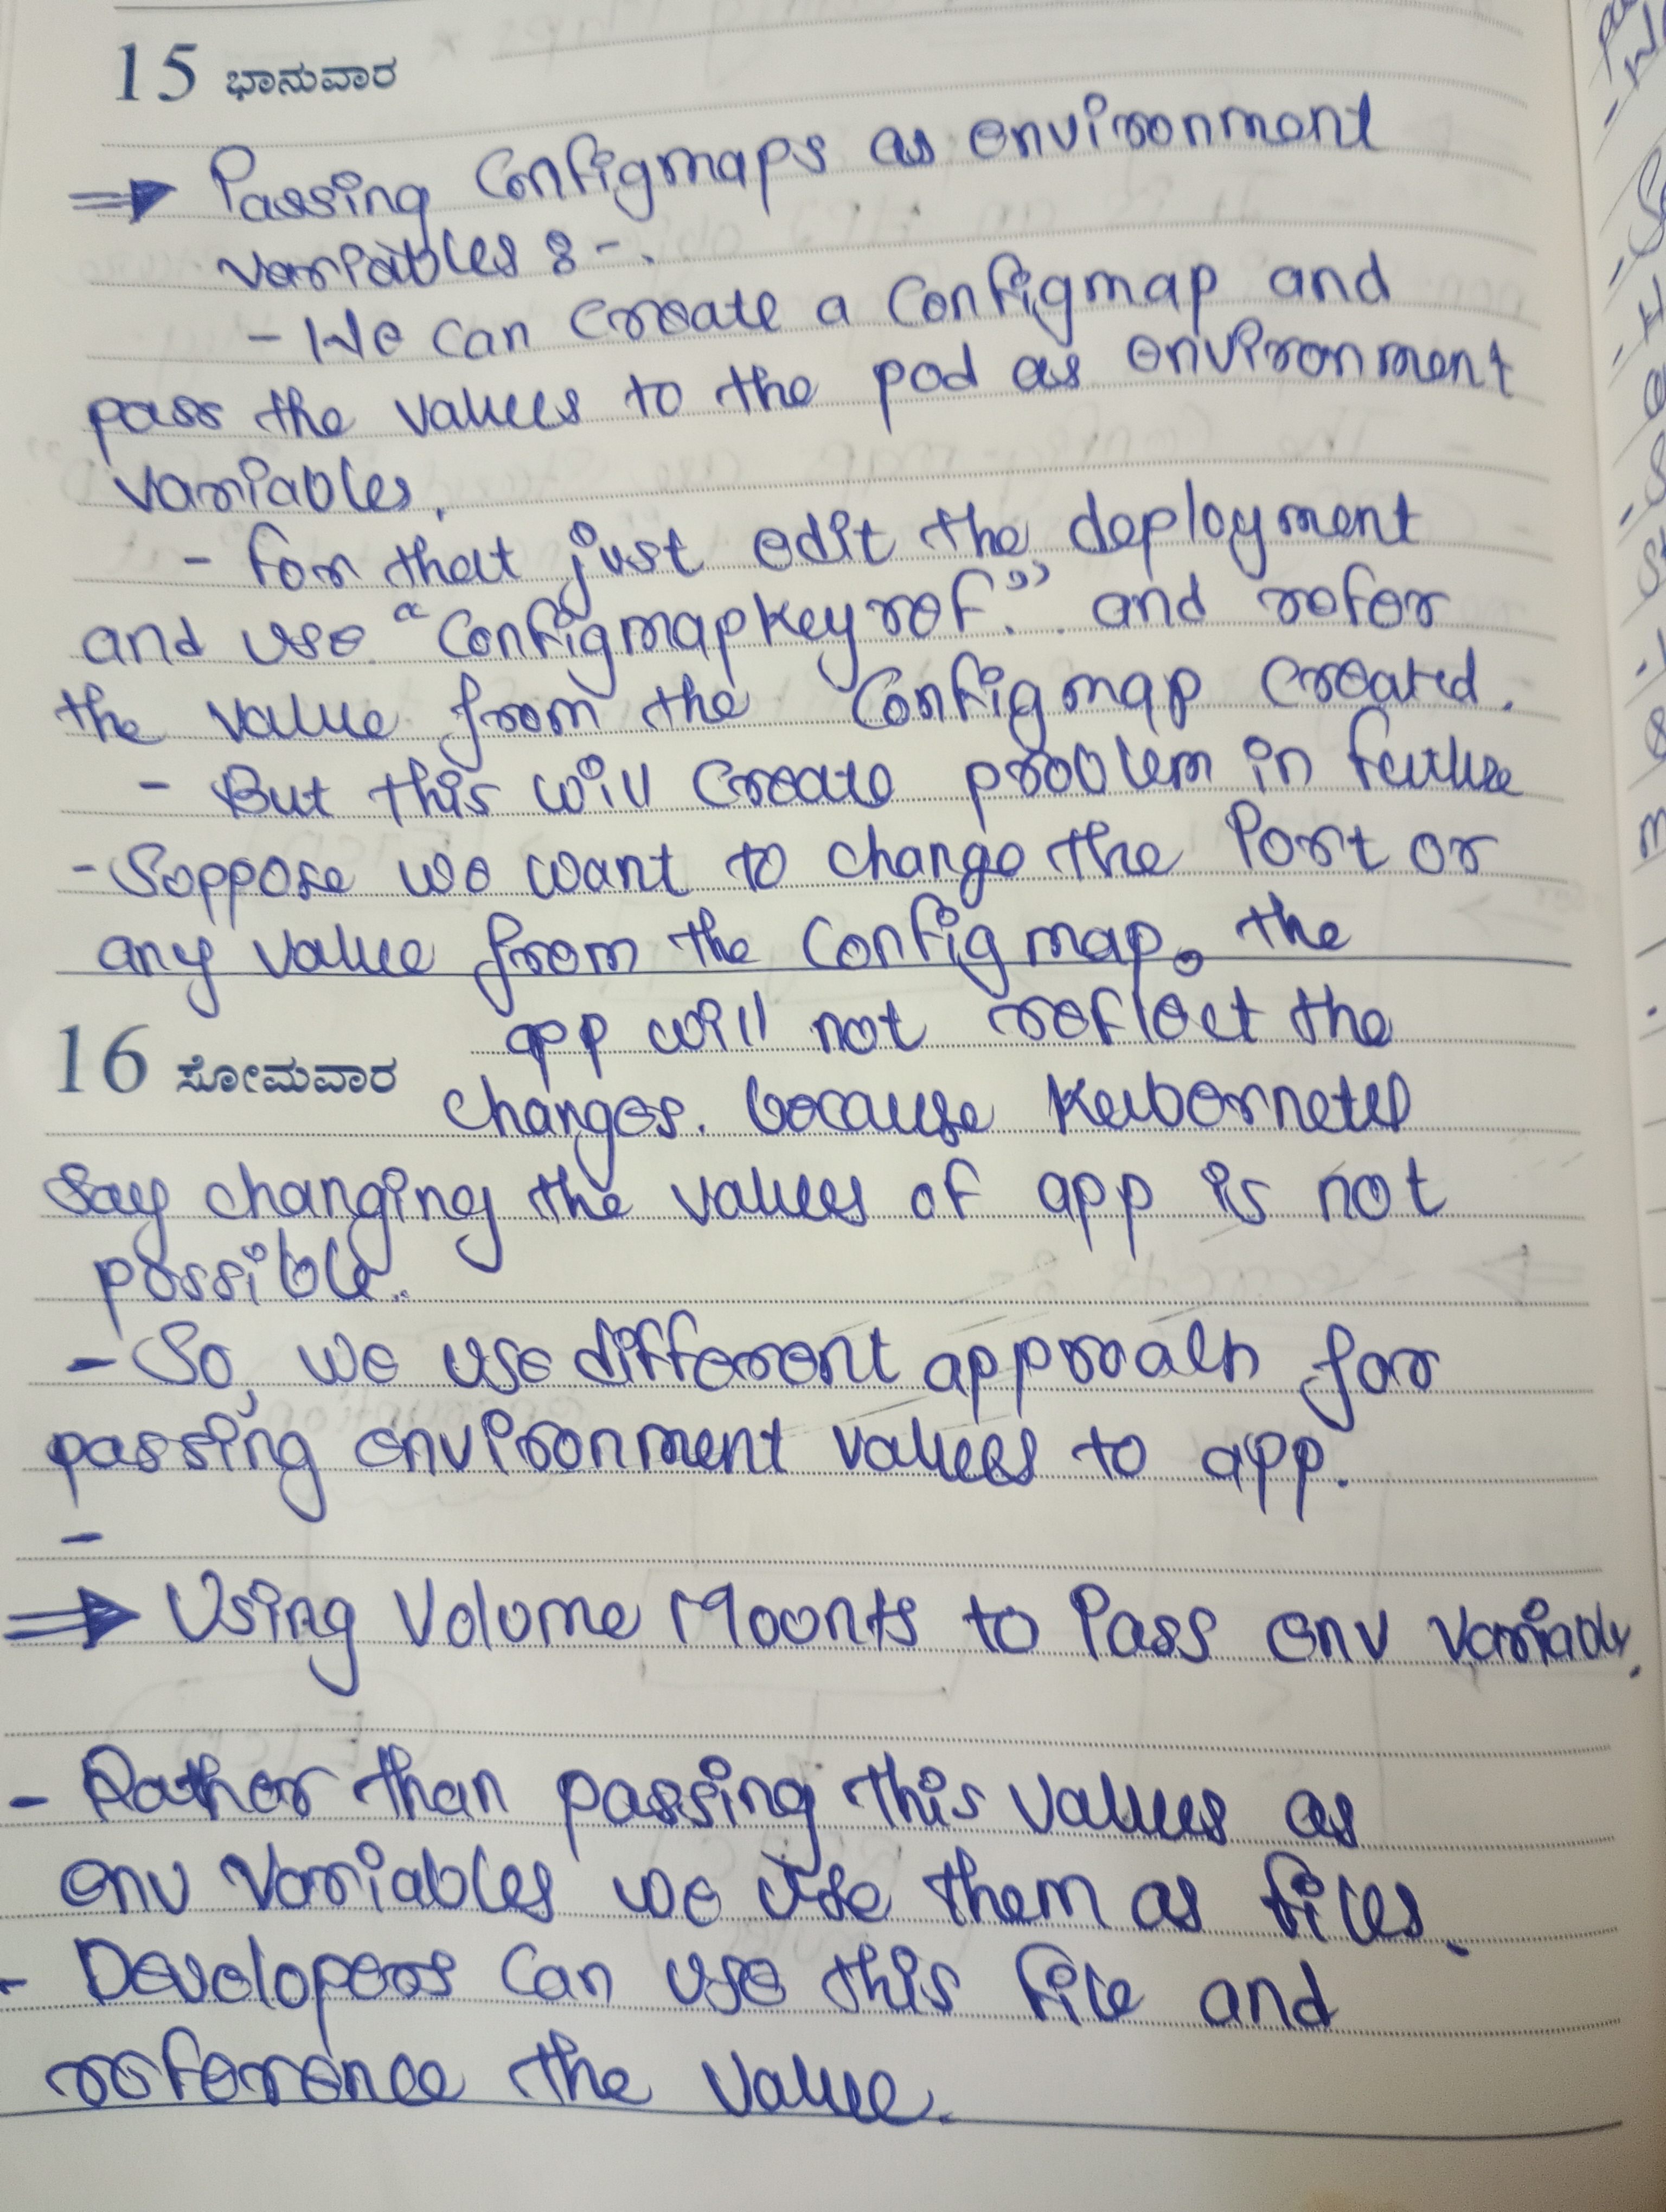 15 ಭಾನುವಾರ
⇒ Passing Configmaps as environment
variables :-
- We can create a Configmap and
pass the values to the pod as environment
variables.
- For that just edit the deployment
and use "Configmapkeyref." and refer
the value from the Configmap created.
- But this will create problem in future
- Suppose we want to change the Port or
any value from the Configmap. the
app will not reflect the
16 ಸೋಮವಾರ
changes. because Kubernetes
say changing the values of app is not
possible.
- So, we use different approach for
passing environment values to app.
-
⇒ Using Volume Mounts to Pass env variables.
- Rather than passing this values as
env variables we use them as files.
- Developers can use this file and
reference the value.